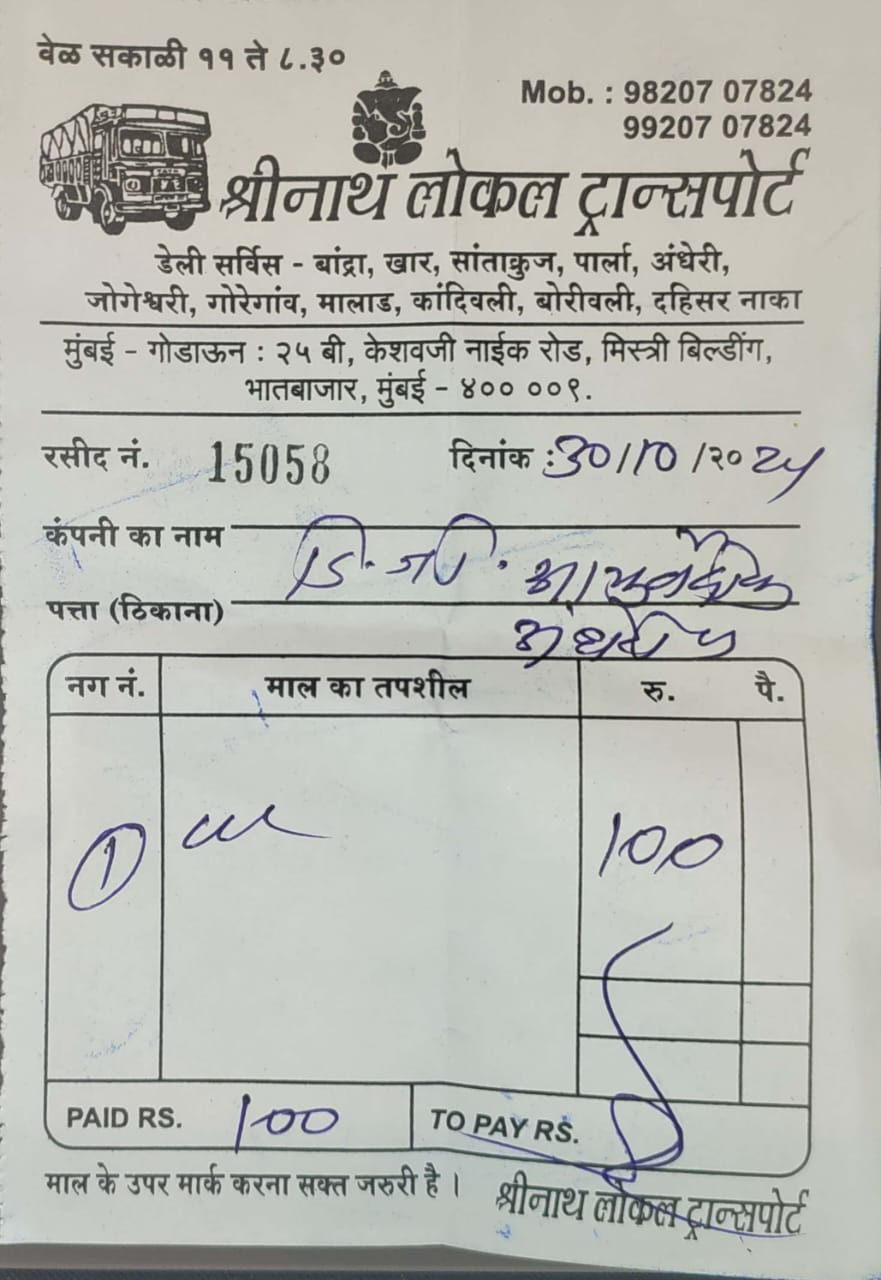 वेळ सकाळी ११ ते ८.३०
Mob. : 98207 07824
99207 07824
श्रीनाथ लोकल ट्रान्सपोर्ट
डेली सर्विस - बांद्रा, खार, सांताक्रुज, पार्ला, अंधेरी,
जोगेश्वरी, गोरेगांव, मालाड, कांदिवली, बोरीवली, दहिसर नाका
मुंबई - गोडाऊन : २५ बी, केशवजी नाईक रोड, मिस्त्री बिल्डींग,
भातबाजार, मुंबई - ४०० ००९.
रसीद नं. 15058 दिनांक : 30/10/२० 24
कंपनी का नाम डि. जी.
पत्ता (ठिकाना)
नग नं. माल का तपशील रु. पै.
1 100
PAID RS. 100 TO PAY RS.
माल के उपर मार्क करना सक्त जरुरी है ।
श्रीनाथ लोकल ट्रान्सपोर्ट